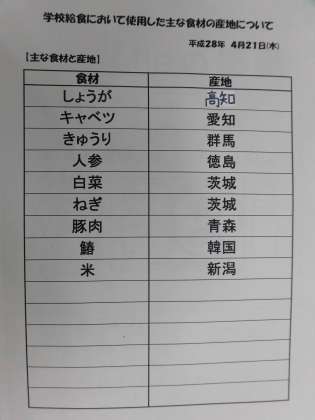 学校給食において使用した主な食材の産地について
平成28年 4月21日(木)
【主な食材と産地】
食材 産地
しょうが 高知
キャベツ 愛知
きゅうり 群馬
人参 徳島
白菜 茨城
ねぎ 茨城
豚肉 青森
鰆 韓国
米 新潟